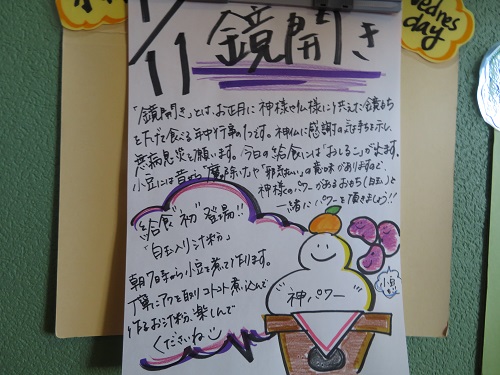 Wednesday
1/11 鏡開き
「鏡開き」とは、お正月に神様や仏様にお供えした鏡もち
を下げて食べる年中行事の1つです。神仏に感謝の気持ちを示し、
無病息災を願います。今日の給食には「おしるこ」が出ます。
小豆には昔から魔除けや"邪気払い"の意味がありますので、
神様のパワーがあるおもち(白玉)と
一緒にパワーを頂きましょう!!
給食"初"登場!!
「白玉入り汁粉」
朝7時から小豆を煮て作ります。
丁寧にアクを取りコトコト煮込んで
作るお汁粉、楽しんで
くださいね
神パワー
小豆